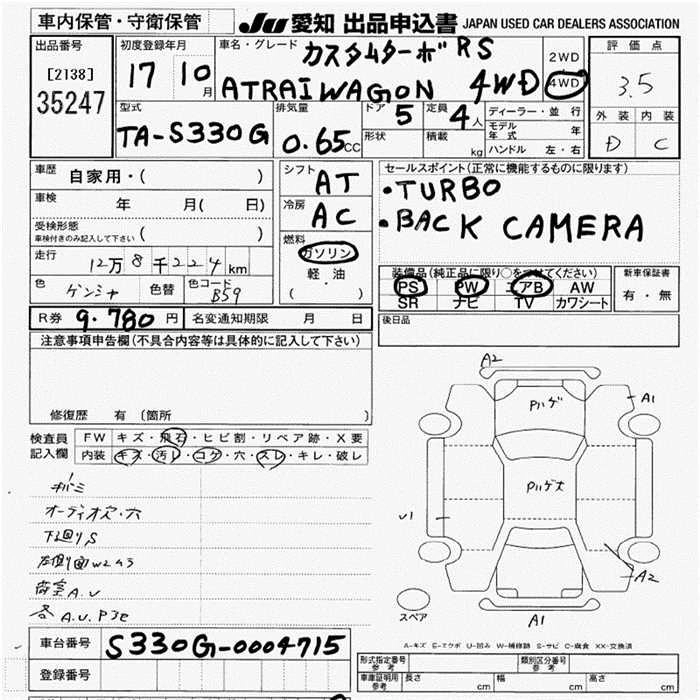 車内保管・守衛保管
JU 愛知 出品申込書 JAPAN USED CAR DEALERS ASSOCIATION
出品番号
[2138]
35247
初度登録年月
17 10月
車名・グレード
カスタムターボRS
ATRAIWAGON 4WD
2WD
4WD
評価点
3.5
外装 内装
D C
型式
TA-S330G
排気量
0.65CC
ドア 5
定員 4人
形状
積載 kg
ディーラー・並行
モデル年式 年
ハンドル 左・右
車歴 自家用・( )
車検 年 月( 日)
受検形態
車検付きのみ記入して下さい ( )
走行 12万8千224km
色 ゲンミャ 色替 色コード B59
シフト AT
冷房 AC
燃料
ガソリン
軽・油
( )
セールスポイント(正常に機能するものに限ります)
・TURBO
・BACK CAMERA
装備品(純正品に限り○をつけてください)
PS PW エアB AW
SR ナビ TV カワシート
新車保証書
有・無
R券 9.780円 名変通知期限 月 日
後日品
注意事項申告欄(不具合内容等は具体的に記入して下さい)
修復歴 有 (箇所 )
検査員記入欄
FW キズ・飛石・ヒビ割・リペア跡・X要
内装 キズ・汚レ・コゲ・穴・スレ・キレ・破レ
オーディオ欠・穴
下廻りS
荷室A.U
各A.U.P3E
A2
A1
Pハゲ
Pハゲ大
U1
A2
A1
スペア
A-キズ E-エクボ U-凹み W-補修跡 S-サビ C-腐食 XX-交換済
車台番号 S330G-0004715
登録番号
形式指定番号 参考
類別区分番号 参考
車庫証明用 参考 長さ cm 幅 cm 高さ cm